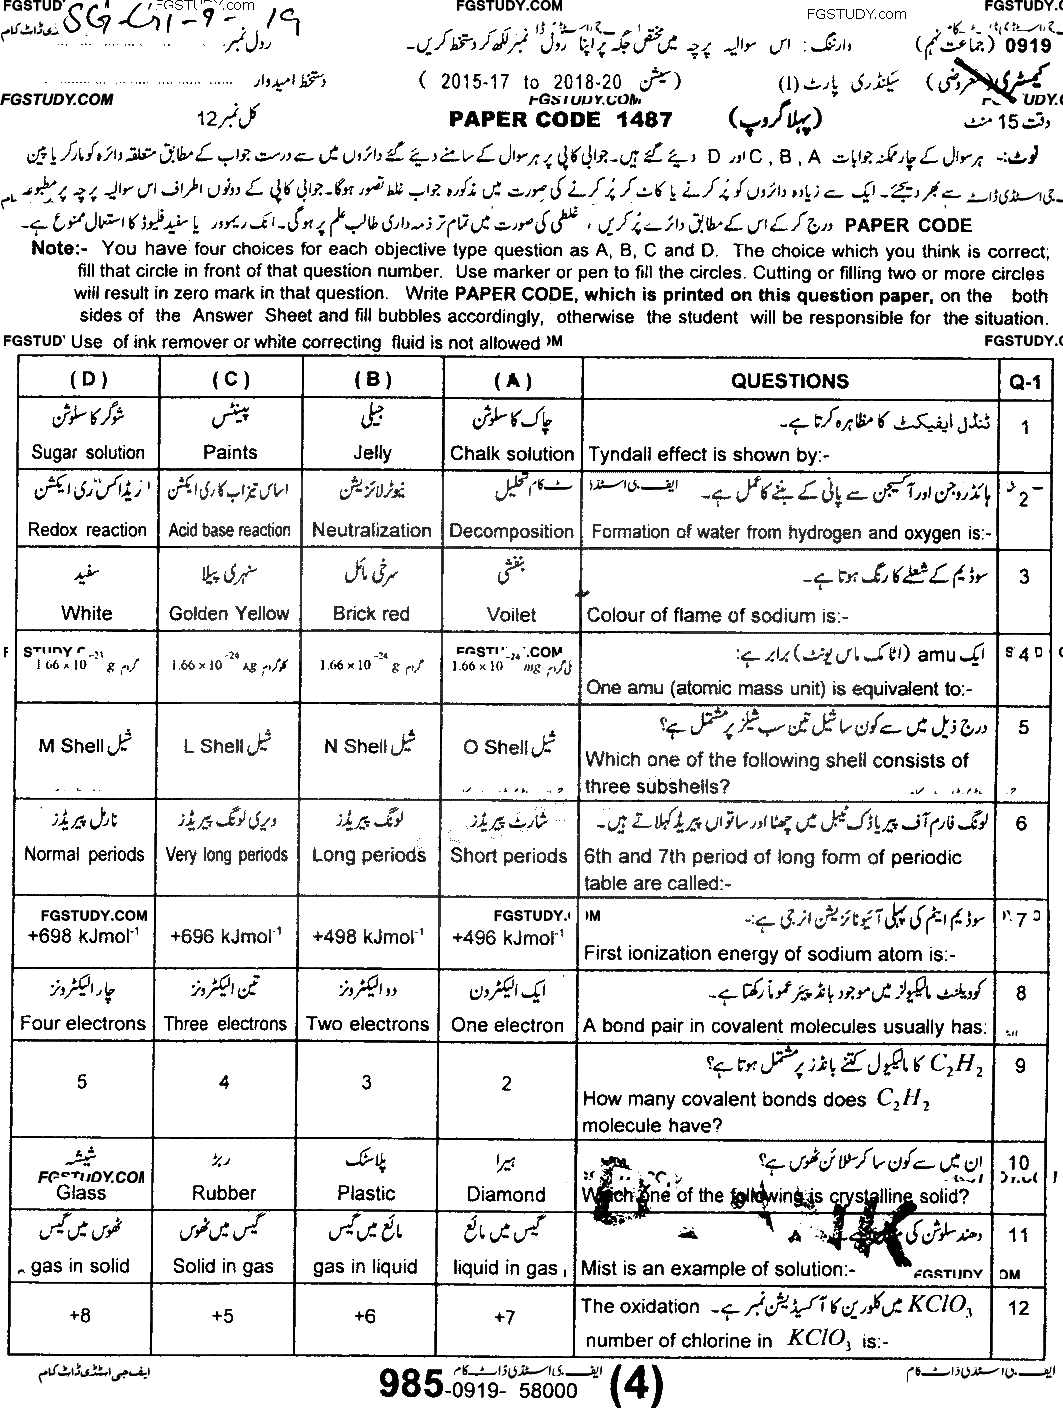 FGSTUDY.COM
FGSTUDY.COM
SG-G1-9-19
رول نمبر
وارننگ: اس سوالیہ پرچہ میں مختص جگہ پر اپنا رول نمبر لکھ کر دستخط کریں۔
0919 (جماعت نہم)
دستخط امیدوار
( 2015-17 to 2018-20 سیشن)
سیکنڈری پارٹ (I)
کیمسٹری (معروضی)
FGSTUDY.COM
FGSTUDY.COM
کل نمبر 12
PAPER CODE 1487
(پہلا گروپ)
وقت 15 منٹ
نوٹ:- ہر سوال کے چار ممکنہ جوابات A ، B ، C اور D دیئے گئے ہیں۔ جوابی کاپی پر ہر سوال کے سامنے دیئے گئے دائروں میں سے درست جواب کے مطابق متعلقہ دائرہ کو مارکر یا پین
سے بھر دیجئے۔ ایک سے زیادہ دائروں کو پُر کرنے یا کاٹ کر پُر کرنے کی صورت میں مذکورہ جواب غلط تصور ہوگا۔ جوابی کاپی کے دونوں اطراف اس سوالیہ پرچہ پر مطبوعہ
PAPER CODE درج کر کے اس کے مطابق دائرے پُر کریں ، غلطی کی صورت میں تمام تر ذمہ داری طالب علم پر ہوگی۔ انک ریموور یا سفید فلیوڈ کا استعمال ممنوع ہے۔
Note:- You have four choices for each objective type question as A, B, C and D. The choice which you think is correct;
fill that circle in front of that question number. Use marker or pen to fill the circles. Cutting or filling two or more circles
will result in zero mark in that question. Write PAPER CODE, which is printed on this question paper, on the both
sides of the Answer Sheet and fill bubbles accordingly, otherwise the student will be responsible for the situation.
FGSTUD' Use of ink remover or white correcting fluid is not allowed
FGSTUDY.C
(D) (C) (B) (A) QUESTIONS Q-1
شوگر کا سلوشن پینٹس جیلی چاک کا سلوشن ٹنڈل ایفیکٹ کا مظاہرہ کرتا ہے۔ 1
Sugar solution Paints Jelly Chalk solution Tyndall effect is shown by:-
ریڈاکس ری ایکشن اساس تیزاب کا ری ایکشن نیوٹرلائزیشن تحلیل ہائڈروجن اور آکسیجن سے پانی کے بننے کا عمل ہے۔ 2
Redox reaction Acid base reaction Neutralization Decomposition Formation of water from hydrogen and oxygen is:-
سفید سنہری پیلا سرخی مائل بنفشی سوڈیم کے شعلے کا رنگ ہوتا ہے۔ 3
White Golden Yellow Brick red Voilet Colour of flame of sodium is:-
1.66 x 10⁻²³ g گرام 1.66 x 10⁻²⁴ kg کلوگرام 1.66 x 10⁻²⁴ g گرام 1.66 x 10⁻²⁴ mg ملی گرام ایک amu (اٹامک ماس یونٹ) برابر ہے: 4
One amu (atomic mass unit) is equivalent to:-
M Shell شیل L Shell شیل N Shell شیل O Shell شیل درج ذیل میں سے کون سا شیل تین سب شیلز پر مشتمل ہے؟ 5
Which one of the following shell consists of
three subshells?
نارمل پیریڈز ویری لونگ پیریڈز لونگ پیریڈز شارٹ پیریڈز لونگ فارم آف پیریاڈک ٹیبل میں چھٹا اور ساتواں پیریڈ کہلاتے ہیں۔ 6
Normal periods Very long periods Long periods Short periods 6th and 7th period of long form of periodic
table are called:-
FGSTUDY.COM
سوڈیم ایٹم کی پہلی آئیونائزیشن انرجی ہے:- 7
+698 kJmol⁻¹ +696 kJmol⁻¹ +498 kJmol⁻¹ +496 kJmol⁻¹ First ionization energy of sodium atom is:-
چار الیکٹرونز تین الیکٹرونز دو الیکٹرونز ایک الیکٹرون کوویلنٹ مالیکیولز میں موجود بانڈ پیئر عموماً رکھتا ہے۔ 8
Four electrons Three electrons Two electrons One electron A bond pair in covalent molecules usually has:
5 4 3 2 C₂H₂ کا مالیکیول کتنے بانڈز پر مشتمل ہوتا ہے؟ 9
How many covalent bonds does C₂H₂
molecule have?
شیشہ ربڑ پلاسٹک ہیرا ان میں سے کون سا کرسٹلائن ٹھوس ہے؟ 10
FGSTUDY.COM
Glass Rubber Plastic Diamond Which one of the following is crystalline solid?
ٹھوس میں گیس گیس میں ٹھوس مائع میں گیس گیس میں مائع دھند سلوشن کی 11
gas in solid Solid in gas gas in liquid liquid in gas Mist is an example of solution:-
FGSTUDY
+8 +5 +6 +7 KClO₃ میں کلورین کا آکسیڈیشن نمبر ہے۔ The oxidation 12
number of chlorine in KClO₃ is:-
ایف جی اسٹڈی ڈاٹ کام
985-0919- 58000 (4)